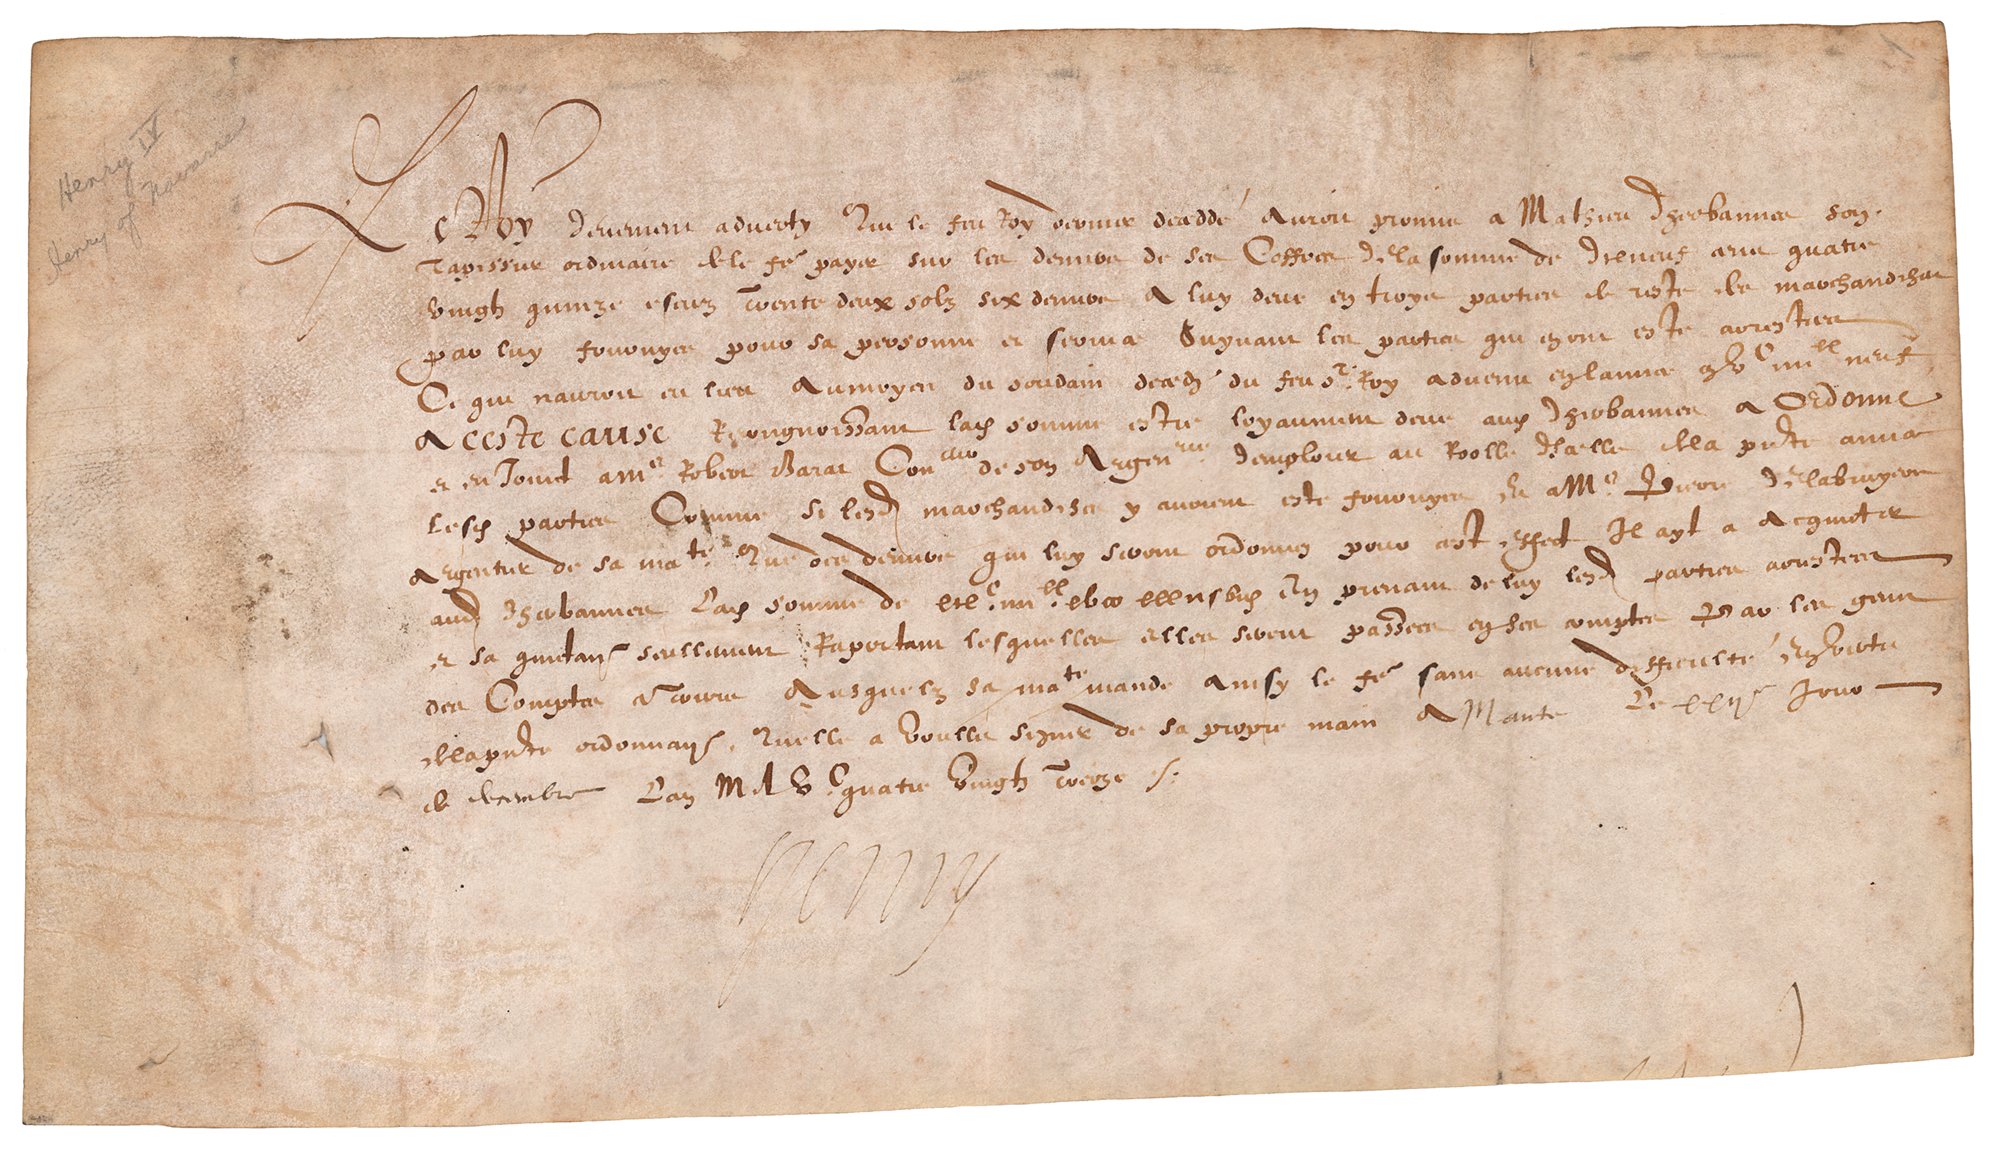 Henry IV
Henry of Navarre
Le Roy deuement adverty Que le feu Roy dernier deceddé auroit promis a Mathieu Dherbannes son
Tapissier ordinaire de le fe payer sur les deniers de ses Coffres de la somme de neuf cens quatre
vingtz quinze escuz trente deux solz six deniers A luy deue en troys parties de reste de marchandises
par luy fournyes pour sa personne et service Suyvant les parties qui en ont esté arrestées
Ce qui nauroit eu lieu Au moyen du soudain decedz du feu Sr Roy advenu en lannee vc iiiixx neuf
A ceste cause Recongnoissant lad somme estre loyaument deue aud Dherbannes A Ordonné
et enjoinct a me Robert Barat Con de son Argenrie demployer au Roolle dicelle de la pnte annee
lesd parties Comme si lesd marchandises y avoient esté fournyes Et a Me Pierre Delabruyere
Argentier de sa mate Que des deniers qui luy seront ordonnez pour cest effect Il ayt a Acquicter
aud Dherbannes Lad somme de En prenant de luy lesd parties arrestées
et sa quictance seullement Raportant lesquelles elles seront passées en ses comptes Par les gens
des Comptes Ausquelz sa mate mande Ainsy le fe sans aucune difficulté En vertu
de la pnte ordonnance, Quelle a voullu signer de sa propre main A Mante Le jour
de Lan M Vc quatre vingtz treize
Henry